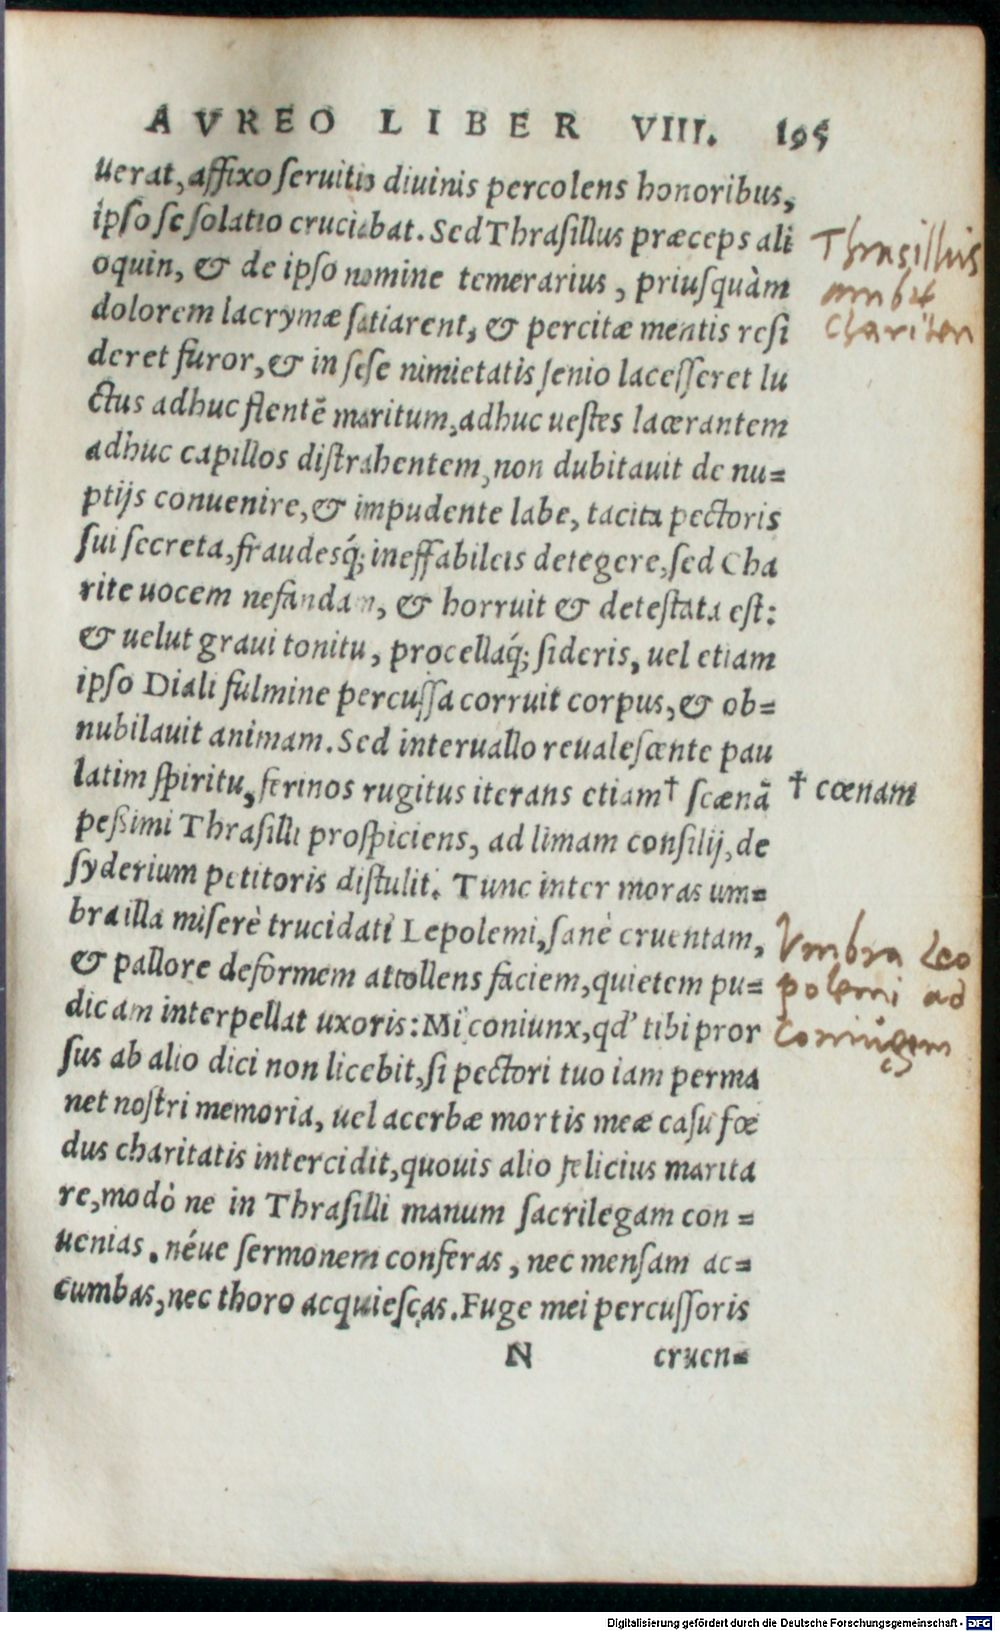 AVREO LIBER VIII. 195
uerat, affixo seruitio diuinis percolens honoribus,
ipso se solatio cruciabat. Sed Thrasillus præceps ali
oquin, & de ipso nomine temerarius, priusquàm
dolorem lacrymæ satiarent, & percitæ mentis resi
deret furor, & in sese nimietatis senio lacesseret lu
ctus adhuc flentē maritum, adhuc uestes lacerantem
adhuc capillos distrahentem, non dubitauit de nu=
ptijs conuenire, & impudente labe, tacita pectoris
sui secreta, fraudesq́; ineffabileis detegere, sed Cha
rite uocem nefandam, & horruit & detestata est:
& uelut graui tonitu, procellaq́; sideris, uel etiam
ipso Diali fulmine percussa corruit corpus, & ob=
nubilauit animam. Sed interuallo reualescente pau
latim spiritu, ferinos rugitus iterans etiam † scænā
pessimi Thrasilli prospiciens, ad limam consilij, de
syderium petitoris distulit. Tunc inter moras um=
bra illa miserè trucidati Lepolemi, sanè cruentam,
& pallore deformem attollens faciem, quietem pu=
dicam interpellat uxoris: Mi coniunx, qd' tibi pror
sus ab alio dici non licebit, si pectori tuo iam perma
net nostri memoria, uel acerbæ mortis meæ casu fœ
dus charitatis intercidit, quouis alio felicius marita
re, modò ne in Thrasilli manum sacrilegam con=
uenias. néue sermonem conferas, nec mensam ac=
cumbas, nec thoro acquiescas. Fuge mei percussoris
N cruen=
Thrasillus
ambit
Chariten
† cœnam
Vmbra Leo
polemi ad
Coniugem
Digitalisierung gefördert durch die Deutsche Forschungsgemeinschaft - DFG